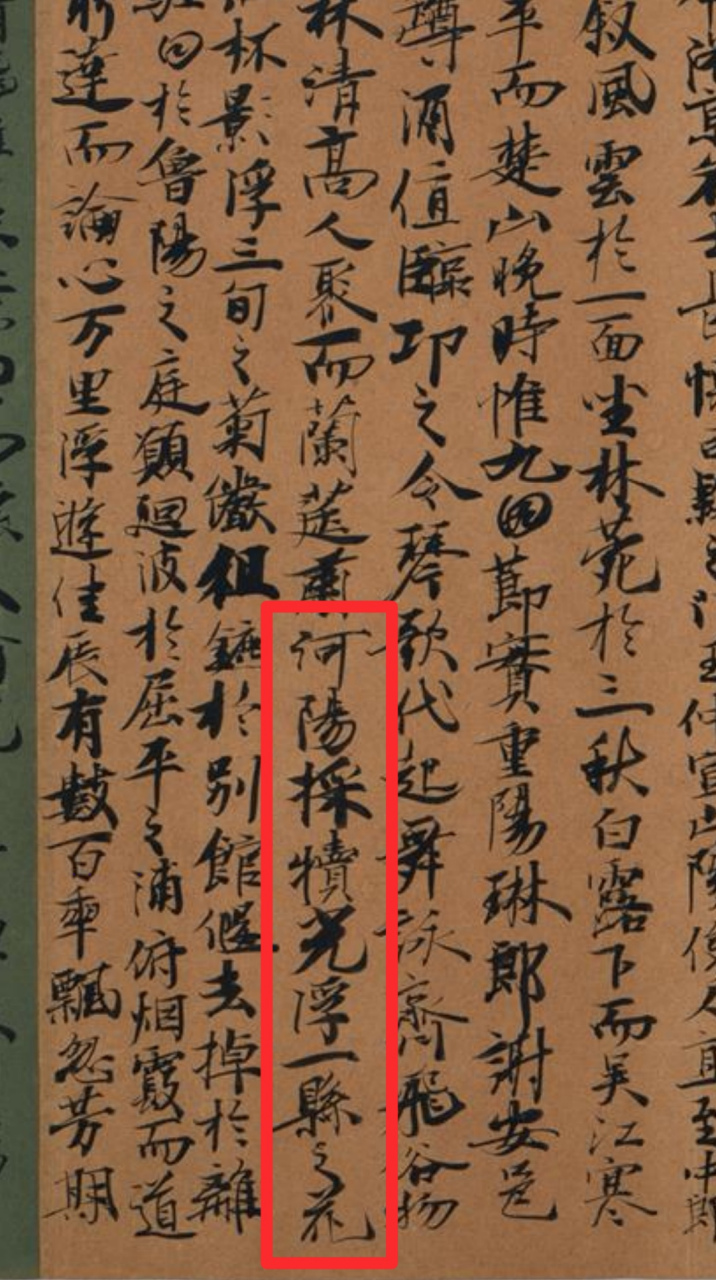 仲宣山陽俊人直至中郎
叙風雲於一面坐林苑於三秋白露下而吴江寒
平而楚山晚時惟九日莭實重陽琳郎謝安邑
罇酒值臨邛之令琴歌代起舞詠齊飛谷物
林清高人聚而蘭莚肅河陽採犢光浮一縣之花
杯影浮三旬之菊儼徂鑣於別館偃去掉於離
駐日於魯陽之庭願廻波於屈平之浦俯烟霞而道
而論心万里浮遊佳辰有數百年飄忽芳期